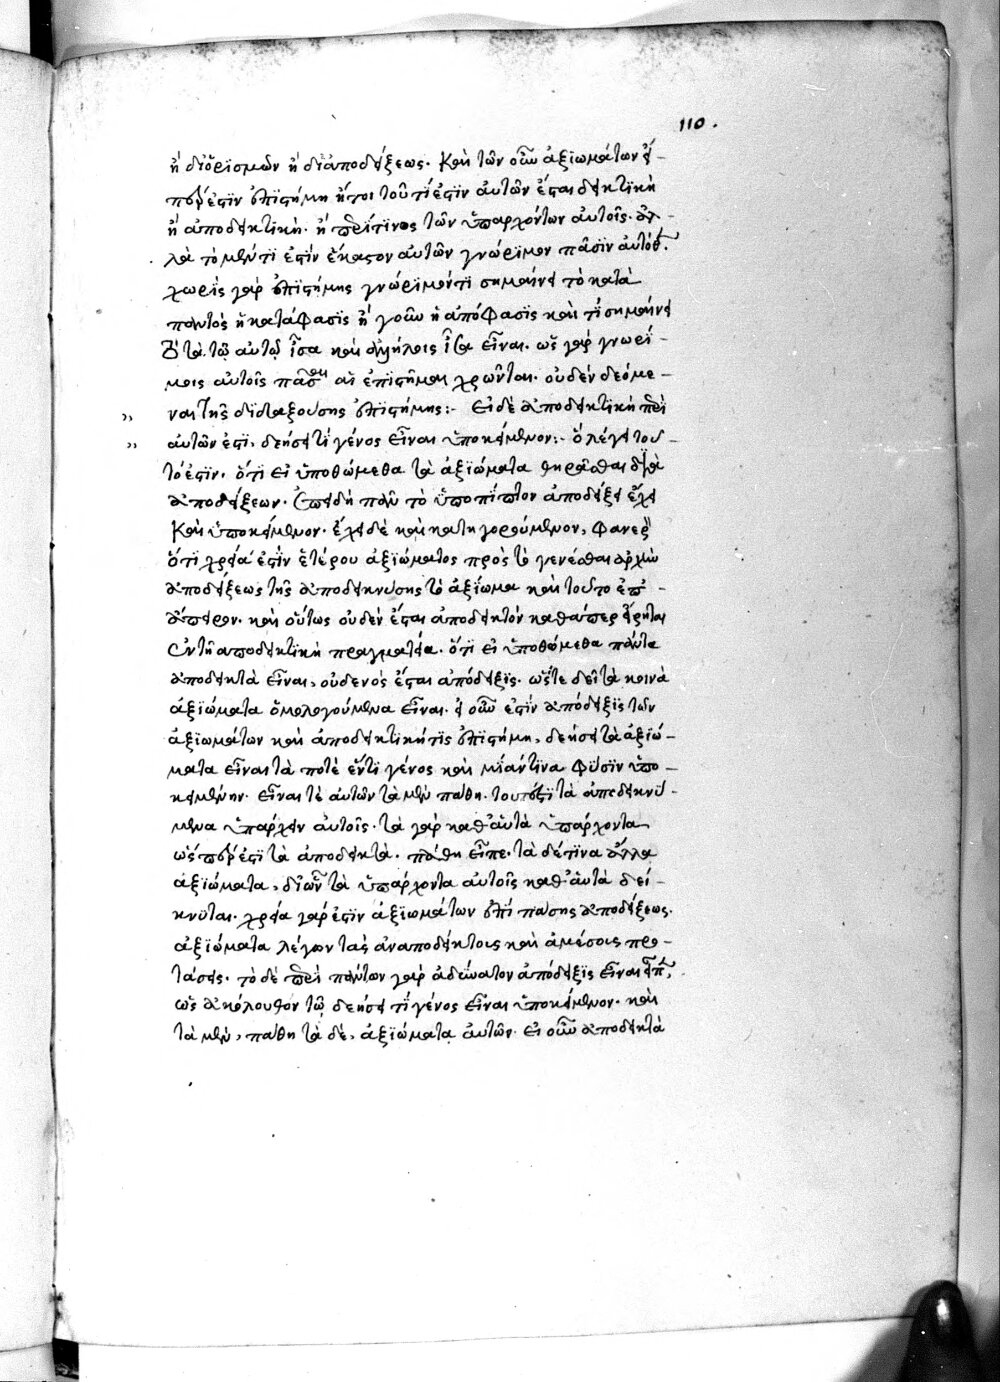 110.
ἢ δι' ὁρισμῶν ἢ δι' ἀποδείξεως. καὶ τῶν οὖν ἀξιωμάτων εἴ-
περ ἐστὶν ἐπιστήμη ἤτοι τοῦ τί ἐστιν αὐτῶν ἔσται δεικτικὴ
ἢ ἀποδεικτικὴ. ἢ περί τινος τῶν ὑπαρχόντων αὐτοῖς. ἀλ-
λὰ τὸ μὲν τί ἐστὶν ἕκαστον αὐτῶν γνώριμον πᾶσιν αὐτόθεν.
χωρὶς γὰρ ἐπιστήμης γνώριμον τί σημαίνει τὸ κατὰ
παντὸς ἢ κατάφασις ἢ γοῦν ἡ ἀπόφασις καὶ τί σημαίνει
τὰ τῷ αὐτῷ ἴσα καὶ ἀλλήλοις ἴσα εἶναι. ὡς γὰρ γνωρί-
μοις αὐτοῖς πᾶσαι αἱ ἐπιστῆμαι χρῶνται. οὐδὲν δεόμε-
ναι τῆς διδαξούσης ἐπιστήμης:- εἰ δὲ ἀποδεικτικὴ περὶ
αὐτῶν ἐστι, δεήσει τί γένος εἶναι ὑποκείμενον:- ὃ λέγει τοι-
τό ἐστιν. ὅτι εἰ ὑποθώμεθα τὰ ἀξιώματα θηρᾶσθαι διὰ
ἀποδείξεων. ἐπειδὴ πᾶν τὸ ὑποπίπτον ἀποδείξει ἔχει
καὶ ὑποκείμενον. ἔχει δὲ καὶ κατηγορούμενον, φανερὸν
ὅτι χρεία ἐστὶν ἑτέρου ἀξιώματος πρὸς τὸ γενέσθαι ἀρχὴν
ἀποδείξεως τῆς ἀποδεικνύσης τὸ ἀξίωμα καὶ τοῦτο ἐπ'
ἄπειρον. καὶ οὕτως οὐδὲν ἔσται ἀποδεικτὸν καθάπερ εἴρηται
ἐν τῇ ἀποδεικτικῇ πραγματείᾳ. ὅτι εἰ ὑποθώμεθα πάντα
ἀποδεικτὰ εἶναι, οὐδενὸς ἔσται ἀπόδειξις. ὥστε δεῖ τὰ κοινὰ
ἀξιώματα ὁμολογούμενα εἶναι. εἰ οὖν ἐστὶν ἀπόδειξις τῶν
ἀξιωμάτων καὶ ἀποδεικτική τις ἐπιστήμη, δεήσει τὰ ἀξιώ-
ματα εἶναι τὰ ποτὲ ἕν τι γένος καὶ μίαν τινα φύσιν ὑπο-
κειμένην. εἶναί τε αὐτῶν τὰ μὲν πάθη. τουτέστι τὰ ἀποδεικνύ-
μενα ὑπάρχειν αὐτοῖς. τὰ γὰρ καθ' αὑτὰ ὑπάρχοντα
ὥσπερ ἐστὶ τὰ ἀποδεικτὰ. πάθη εἶπε. τὰ δέ τινα ἄλλα
ἀξιώματα, δι' ὧν τὰ ὑπάρχοντα αὐτοῖς καθ' αὑτὰ δεί-
κνυται. χρεία γάρ ἐστιν ἀξιωμάτων ἐπὶ πάσης ἀποδείξεως.
ἀξιώματα λέγων τὰς ἀναποδείκτους καὶ ἀμέσους προ-
τάσεις. τὸ δὲ περὶ πάντων γὰρ ἀδύνατον ἀπόδειξις εἶναι εἶπεν,
ὡς ἀκόλουθον τῷ δεήσει τί γένος εἶναι ὑποκείμενον. καὶ
τὰ μὲν, πάθη τὰ δὲ, ἀξιώματα αὐτῶν. εἰ οὖν ἀποδεικτὰ